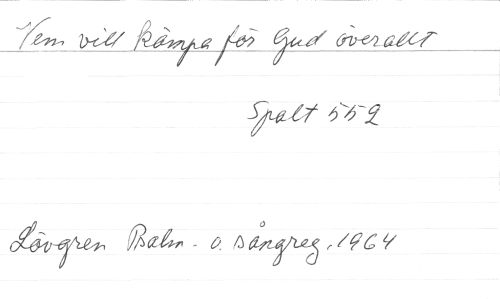 Vem vill kämpa för Gud överallt
Spalt 552
Lövgren Psalm- o. sångreg. 1964